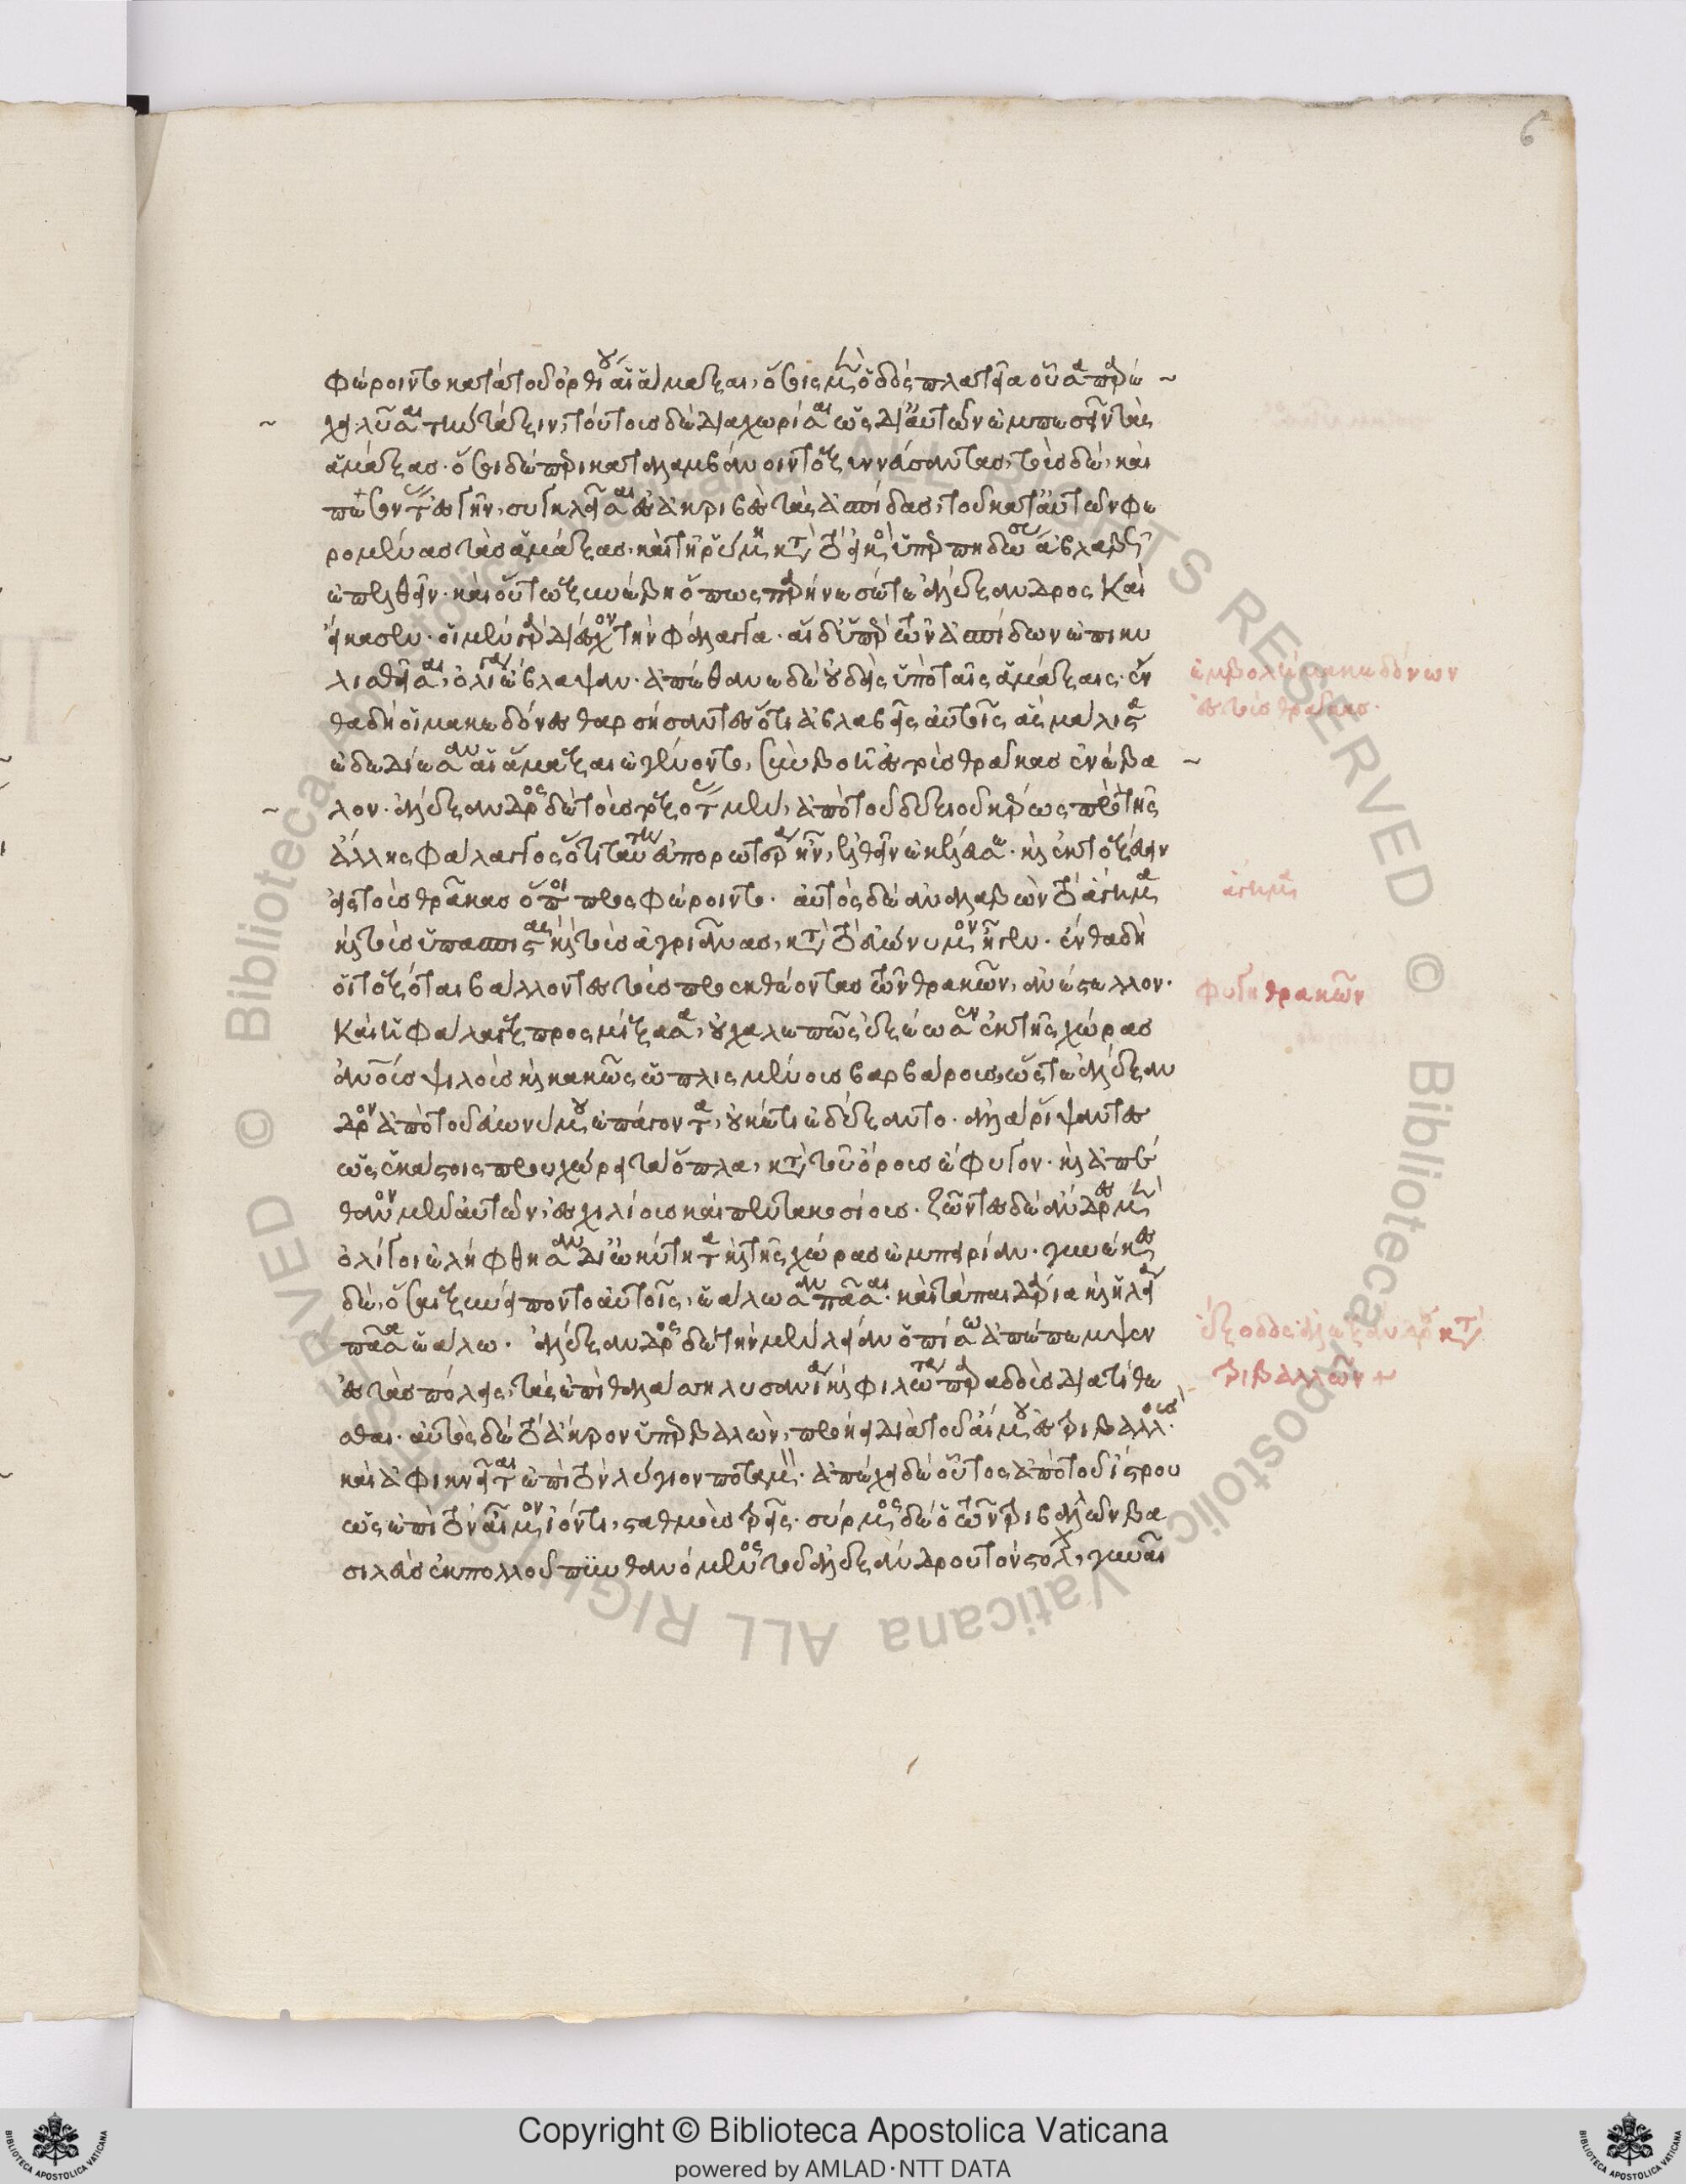 φέροιντο κατὰ τοῦ ὀρθίου αἱ ἅμαξαι, ὅσοις μὲν ὁδὸς πλατεῖα οὖσα παρέ
χει λῦσαι τὴν τάξιν, τούτους δὲ διαχωρῆσαι ὡς δι' αὐτῶν ἐκπεσεῖν τὰς
ἁμάξας. ὅσοι δὲ περικαταλαμβάνοιντο ξυννεύσαντας, τοὺς δὲ, καὶ
πεσόντας ἐς γῆν, συγκλεῖσαι ἐς ἀκριβὲς τὰς ἀσπίδας, τοῦ κατ' αὐτῶν φε
ρομένας τὰς ἁμάξας. καὶ τῇ ῥύμῃ κατὰ τὸ εἰκὸς ὑπερπηδώσας ἀβλαβῶς
ἐπελθεῖν. καὶ οὕτω ξυνέβη ὅπως παρήνεσέ τε ἀλέξανδρος καὶ
εἴκασεν. οἱ μὲν γὰρ διέσχον τὴν φάλαγγα. αἱ δ' ὑπὲρ τῶν ἀσπίδων ἐπικυ
λισθεῖσαι, ὀλίγα ἔβλαψαν. ἀπέθανε δὲ οὐδεὶς ὑπὸ ταῖς ἁμάξαις. ἔν
θα δὴ οἱ μακεδόνες θαρσήσαντες ὅτι ἀβλαβεῖς αὐτοῖς ἃς μάλιστα
ἐδεδίεσαν αἱ ἅμαξαι ἐγένοντο, σὺν βοῇ ἐς τοὺς θρᾷκας ἐνέβα
λον. ἀλέξανδρος δὲ τοὺς τοξότας μὲν, ἀπὸ τοῦ δεξιοῦ κέρως πρὸ τῆς
ἄλλης φάλαγγος ὅτι ταύτῃ εὐπορώτερα ἦν, ἐλθεῖν ἐκέλευσε. καὶ ἐκτοξεύειν
εἰς τοὺς θρᾷκας ὅποι προσφέροιντο. αὐτὸς δὲ ἀναλαβὼν τὸ ἄγημα
καὶ τοὺς ὑπασπιστὰς καὶ τοὺς ἀγριᾶνας, κατὰ τὸ εὐώνυμον ἦγεν. ἔνθα δὴ
οἱ τοξόται βάλλοντες τοὺς προεκθέοντας τῶν θρακῶν, ἀνέστελλον.
καὶ ἡ φάλαγξ προσμίξασα, οὐ χαλεπῶς ἐξέωσεν ἐκ τῆς χώρας
ἀνοὺς ψιλοὺς καὶ κακῶς ὡπλισμένους βαρβάρους, ὥστε ἀλέξαν
δρον ἀπὸ τοῦ εὐωνύμου ἐπάγοντα, οὐκέτι ἐδέξαντο. ἀλλὰ ῥίψαντες
ὡς ἑκάστοις προυχώρει τὰ ὅπλα, κατὰ τοῦ ὄρους ἔφυγον. καὶ ἀπέ
θανον μὲν αὐτῶν, ἐς χιλίους καὶ πεντακοσίους. ζῶντες δὲ ἄνδρες μὲν
ὀλίγοι ἐλήφθησαν δι' ὠκύτητα καὶ τῆς χώρας ἐμπειρίαν. γυναῖκες
δὲ, ὅσαι ξυνείποντο αὐτοῖς, ἑάλωσαν πᾶσαι. καὶ τὰ παιδάρια καὶ ἡ λεία
πᾶσα ἑάλω. ἀλέξανδρος δὲ τὴν μὲν λείαν ὀπίσω ἀπέπεμψεν
ἐς τὰς πόλεις, τὰς ἐπὶ θαλάσσῃ λυσανίᾳ καὶ φιλώτᾳ παραδοὺς διατίθε
σθαι. αὐτὸς δὲ τὸ ἄκρον ὑπερβαλὼν, προῄει διὰ τοῦ αἵμου ἐς τριβαλλούς.
καὶ ἀφικνεῖται ἐπὶ τὸν λύγινον ποταμόν. ἀπέχει δὲ οὗτος ἀπὸ τοῦ ἴστρου
ὡς ἐπὶ τὸν αἷμον ἰόντι, σταθμοὺς τρεῖς. σύρμος δὲ ὁ τῶν τριβαλλῶν βα
σιλεὺς ἐκ πολλοῦ πυνθανόμενος τοῦ ἀλεξάνδρου τὸν στόλον, γυναῖ
ἐμβολὴ μακεδόνων
ἐς τοὺς θρᾷκας.
ἄγημα
φυγὴ θρακῶν
ἔξοδος ἀλεξάνδρου κατὰ
τριβαλλῶν
6
Copyright © Biblioteca Apostolica Vaticana
powered by AMLAD·NTT DATA